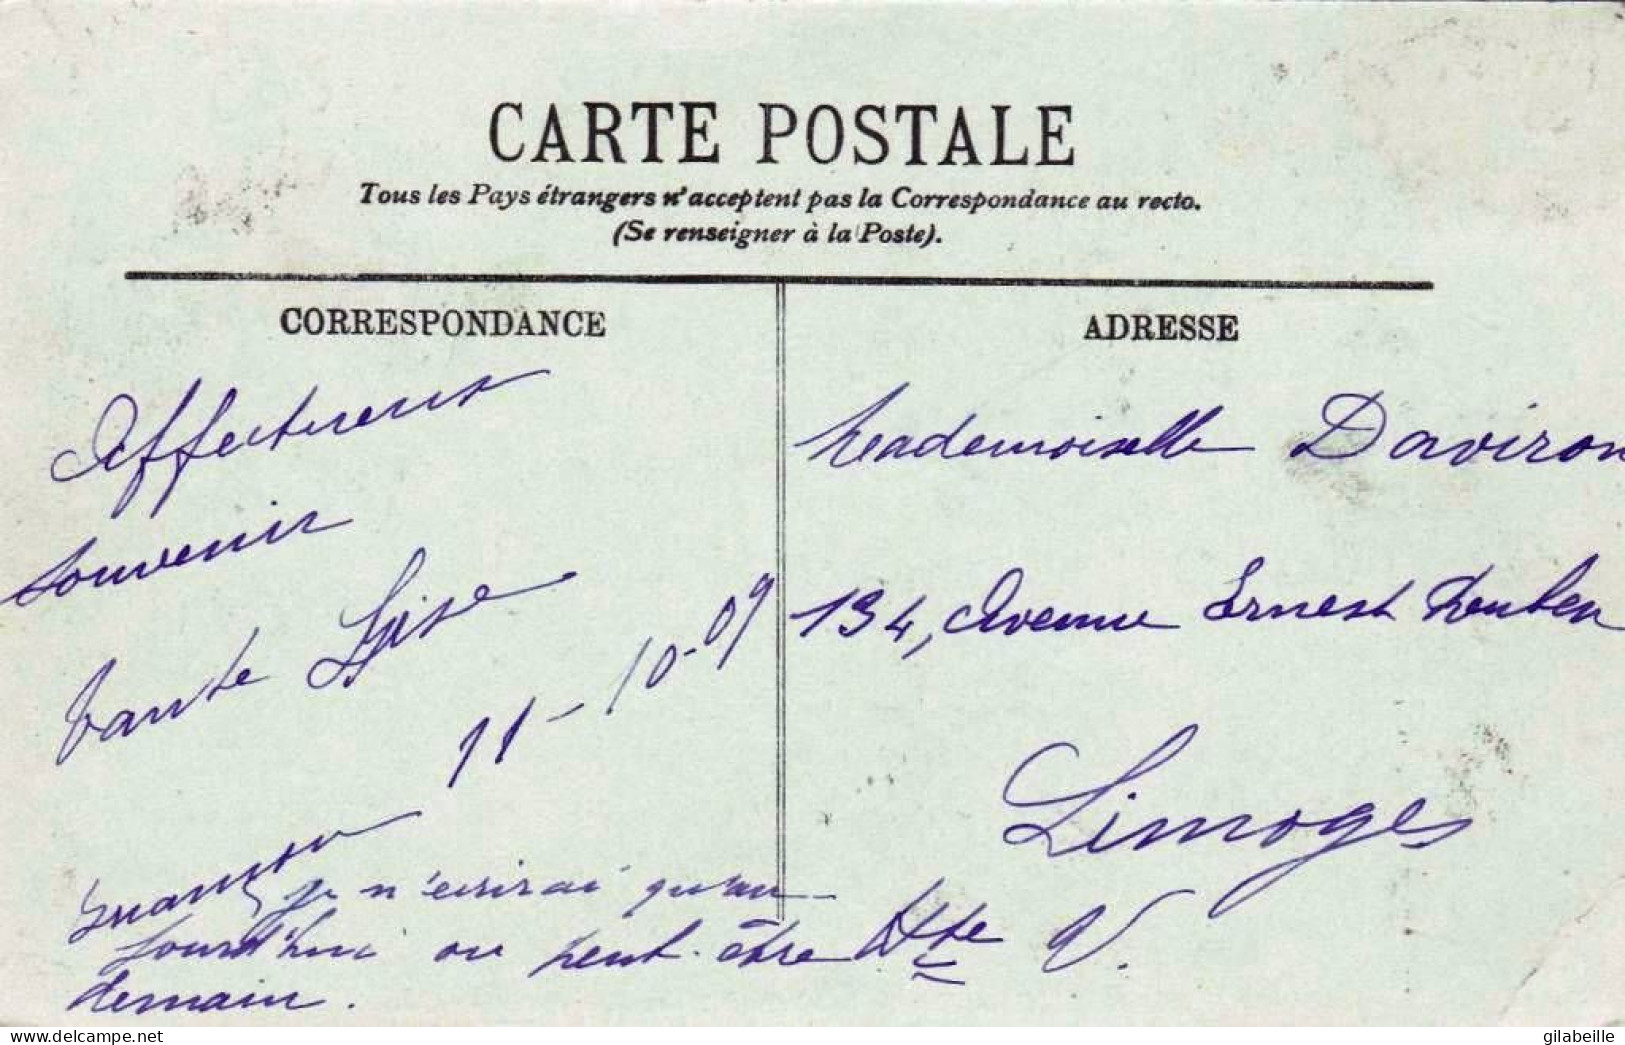 CARTE POSTALE
Tous les Pays étrangers n'acceptent pas la Correspondance au recto.
(Se renseigner à la Poste).
CORRESPONDANCE
ADRESSE
Affectueux
souvenir
tante Lise
11-10-09
je n'écrirai qu'au-
jourd'hui ou peut-être
demain.
Mademoiselle Daviron
134, Avenue Ernest Ruben
Limoges
Hte V.
delcampe.net
gilabeille